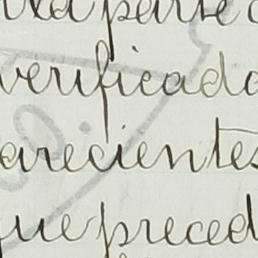 la parte
verificado
arecientes
que preced